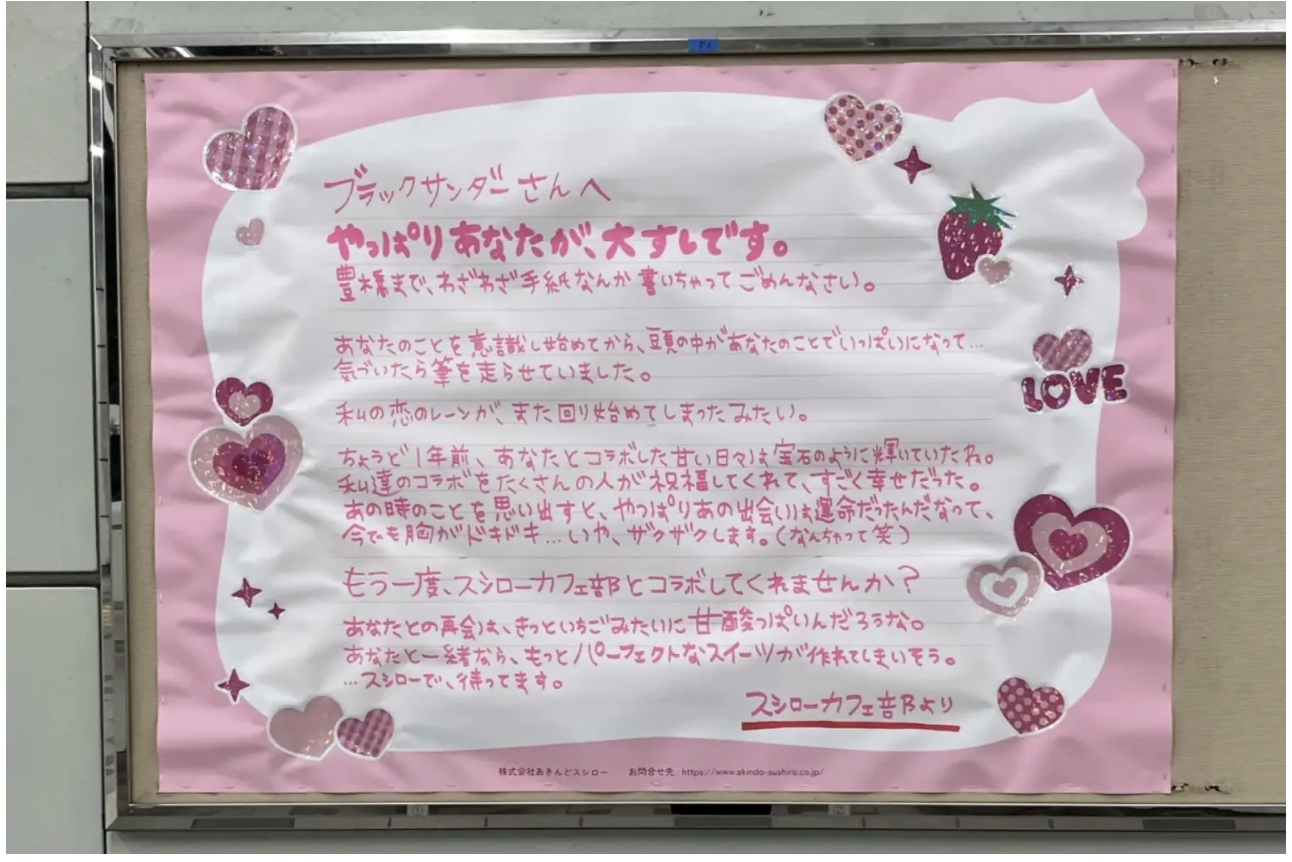 ブラックサンダーさんへ
やっぱりあなたが、大すしです。
豊橋まで、わざわざ手紙なんか書いちゃってごめんなさい。
あなたのことを意識し始めてから、頭の中があなたのことでいっぱいになって…
気づいたら筆を走らせていました。
私の恋のレーンが、また回り始めてしまったみたい。
ちょうど1年前、あなたとコラボした甘い日々は宝石のように輝いていたね。
私達のコラボをたくさんの人が祝福してくれて、すごく幸せだった。
あの時のことを思い出すと、やっぱりあの出会いは運命だったんだなって、
今でも胸がドキドキ…いや、ザクザクします。(なんちゃって笑)
もう一度、スシローカフェ部とコラボしてくれませんか?
あなたとの再会は、きっといちごみたいに甘酸っぱいんだろうな。
あなたと一緒なら、もっとパーフェクトなスイーツが作れてしまいそう。
…スシローで、待ってます。
スシローカフェ部より
LOVE
株式会社あきんどスシロー お問合せ先:https://www.akindo-sushiro.co.jp/